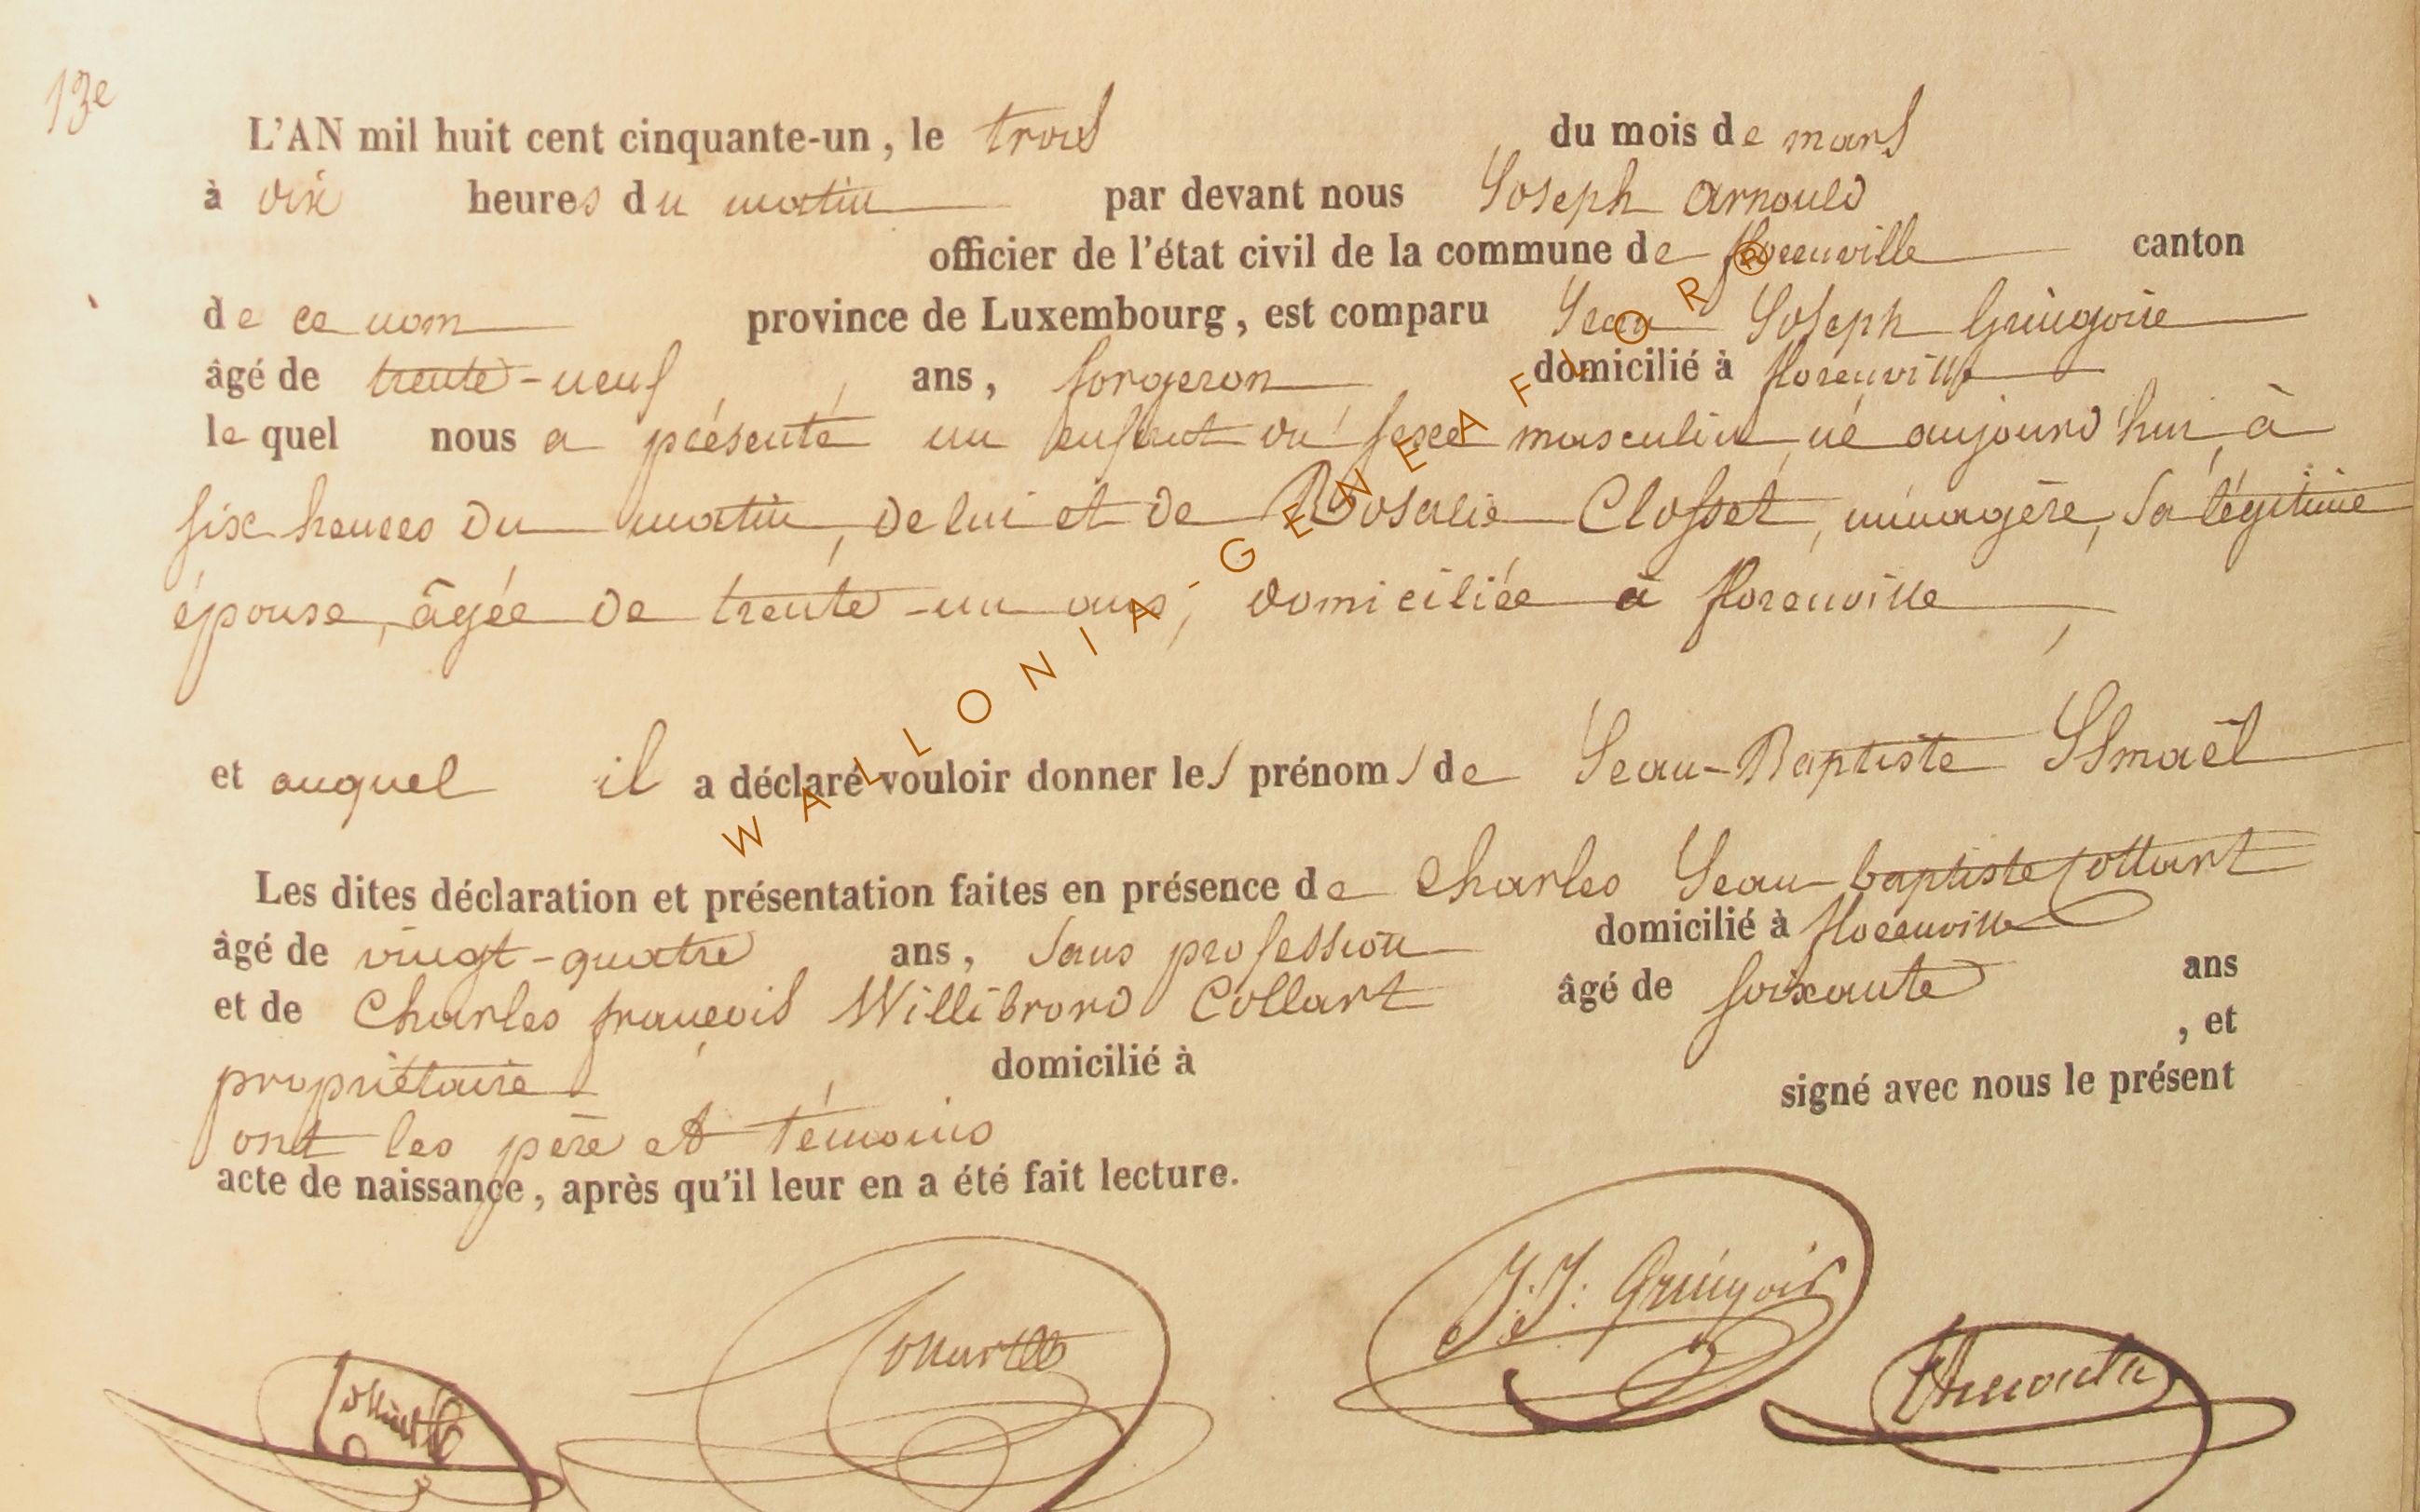 13e
L'AN mil huit cent cinquante-un, le trois du mois de mars
à dix heures du matin par devant nous Joseph Arnould
officier de l'état civil de la commune de florenville canton
de ce nom province de Luxembourg, est comparu Jean Joseph Guingoire
âgé de trente-neuf ans, forgeron domicilié à florenville
le quel nous a présenté un enfant du sexe masculin, né aujourd'hui, à
six heures du matin, de lui et de Rosalie Closset, ménagère, sa légitime
épouse, âgée de trente-un ans, domiciliée à florenville,
et auquel il a déclaré vouloir donner les prénoms de Jean-Baptiste Ismaël
Les dites déclaration et présentation faites en présence de Charles Jean-baptiste Collart
âgé de vingt-quatre ans, sans profession domicilié à florenville
et de Charles françois Willibrord Collart âgé de soixante ans
propriétaire, domicilié à , et
ont les père et témoins signé avec nous le présent
acte de naissance, après qu'il leur en a été fait lecture.
Collart
Collart
J. J. Guingoir
WALLONIA-GEWEAFLOR®